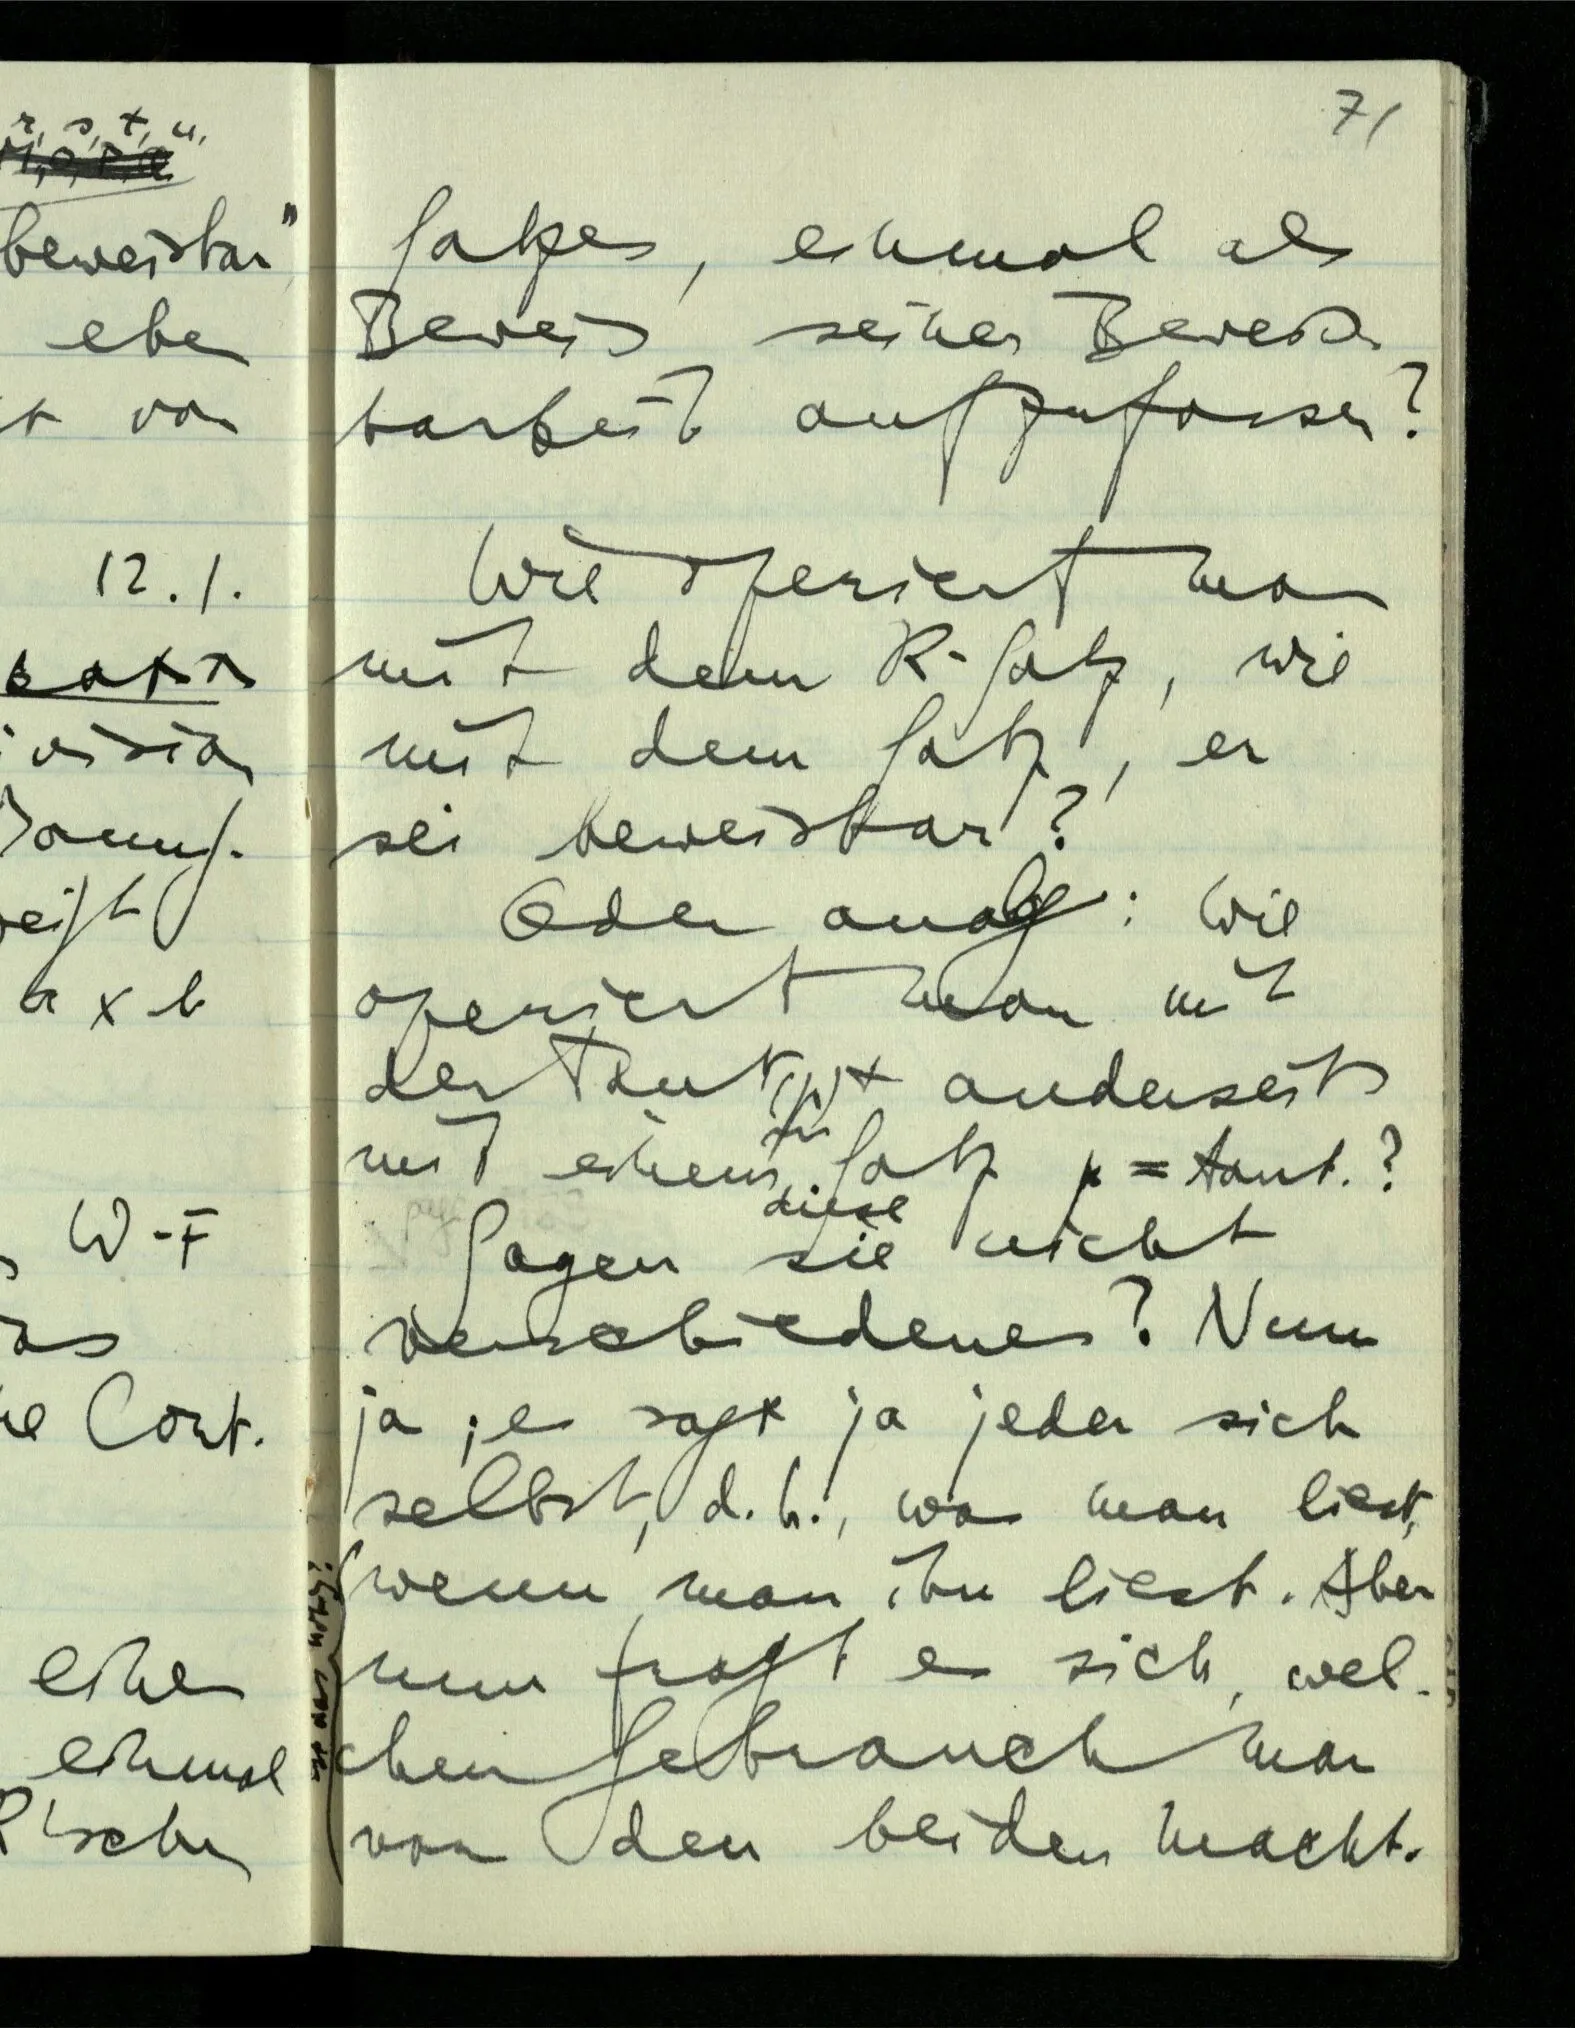 r, s, t, u,
beweisbar"
eben
t von
12.1.
ivision
eist
a x b
W-F
as
ne Cont.
einen
einmal
R'schen
71
Satzes, einmal als
Beweis seiner Beweis
barkeit aufzufassen?
Wie operiert man
mit dem R-Satz, wie
mit dem Satz, er
sei beweisbar?
Oder auch: Wie
operiert man mit
der Taut. & anderseits
mit einem Satz p = taut.?
diese
Sagen sie nicht
verschiedenes? Nun
ja; es sagt ja jeder sich
selbst, d.h., was man liest,
wenn man ihn liest. Aber
nun fragt es sich, wel-
chen Gebrauch man
von den beiden macht.
ist das nötig?